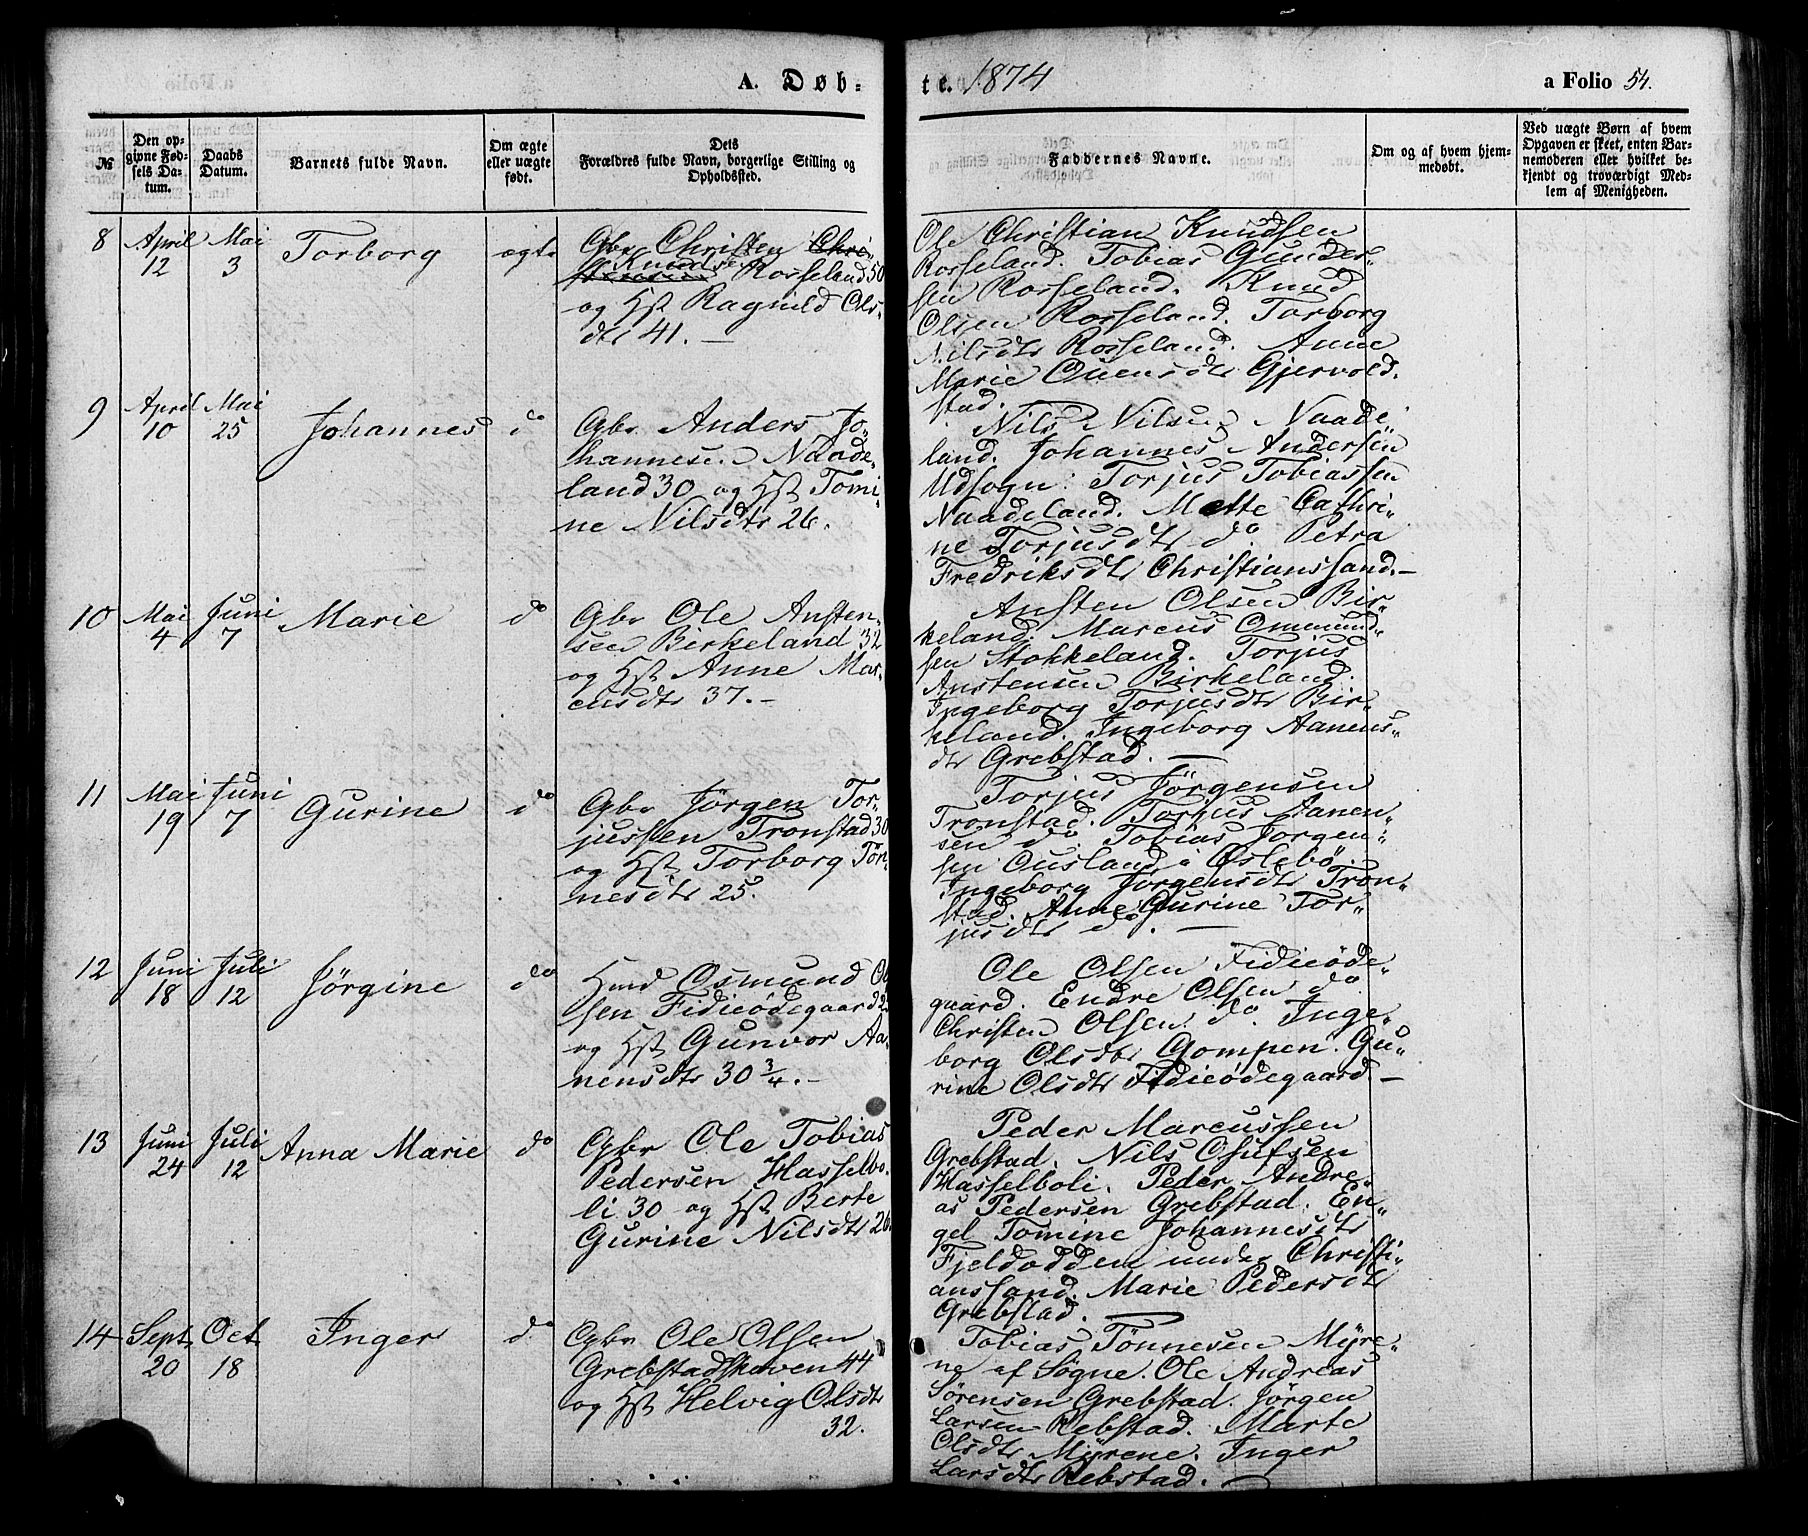 A. Døb-
te. 1874
a Folio 54.
№
Den op-
givne Fød-
sels Da-
tum.
Daabs
Datum.
Barnets fulde Navn.
Om ægte
eller uægte
født.
Dets
Forældres fulde Navn, borgerlige Stilling og
Opholdssted.
Faddernes Navne.
Om og af hvem hjem-
medøbt.
Ved uægte Børn af hvem
Opgaven er skeet, enten Bar-
nemoderen eller hvilket be-
kjendt og troværdigt Med-
lem af Menigheden.
8
April
12
Mai
3
Torborg
ægte
Gbr Christen Chri-
Knudsen Rosseland 50
og Hst Ragnild Ols-
dtr 41. —
Ole Christian Knudsen
Rosseland. Tobias Gunder-
sen Rosseland. Knud
Olsen Rosseland. Torborg
Nilsdtr Rosseland. Anne
Marie Ouensdtr Gjervold-
stad.
9
April
10
Mai
25
Johannes
do
Gbr Anders Jo-
hannesen Naade-
land 30 og Hst Tomi-
ne Nilsdtr 26.
Nils Nilsen Naade-
land. Johannes Andersen
Udsogn. Torjus Tobiassen
Naadeland. Mette Cathri-
ne Torjusdtr do. Petra
Fredriksdtr Christianssand. —
10
Mai
4
Juni
7
Marie
do
Gbr Ole Ansten-
sen Birkeland 32
og Hst Anne Mar-
cusdtr 37. —
Ansten Olsen Bir-
keland. Marcus Ommund-
sen Stokkeland. Torjus
Anstensen Birkeland.
Ingeborg Torjusdtr Bir-
keland. Ingeborg Aanens-
dtr Grebstad. —
11
Mai
19
Juni
7
Gurine
do
Gbr Jørgen Tor-
jussen Tronstad 30
og Hst Torborg Tøn-
nesdtr 25.
Torjus Jørgensen
Tronstad. Torjus Aanen-
sen do. Tobias Jørgen-
sen Ousland i Øslebø.
Ingeborg Jørgensdtr Tron-
stad. Anne Gurine Tor-
jusdtr do. —
12
Juni
18
Juli
12
Jørgine
do
Hmd Osmund Ol-
sen Fidieødegaard 2
og Hst Gunvor Aa-
nensdtr 30 3/4. —
Ole Olsen Fidieøde-
gaard. Endre Olsen do.
Christen Olsen do. Inge-
borg Olsdtr Gompen. Gu-
rine Olsdtr Fidieødegaard —
13
Juni
24
Juli
12
Anna Marie
do
Gbr Ole Tobias
Pedersen Hasselbo-
li 30 og Hst Berte
Gurine Nilsdtr 26.
Peder Marcussen
Grebstad. Nils Osufsen
Hasselboli. Peder Andre-
as Pedersen Grebstad. En-
gel Tomine Johannesdtr
Fjeldodden under Christi-
anssand. Marie Pedersdtr
Grebstad. —
14
Sept.
20
Oct.
18
Inger
do
Gbr Ole Olsen
Grebstadshaven 44
og Hst Helvig Olsdtr
32.
Tobias Tønnesen Myre-
ne af Søgne. Ole Andreas
Sørensen Grebstad. Jørgen
Larsen Rebstad. Marte
Olsdtr Myrene. Inger
Larsdtr Rebstad. —